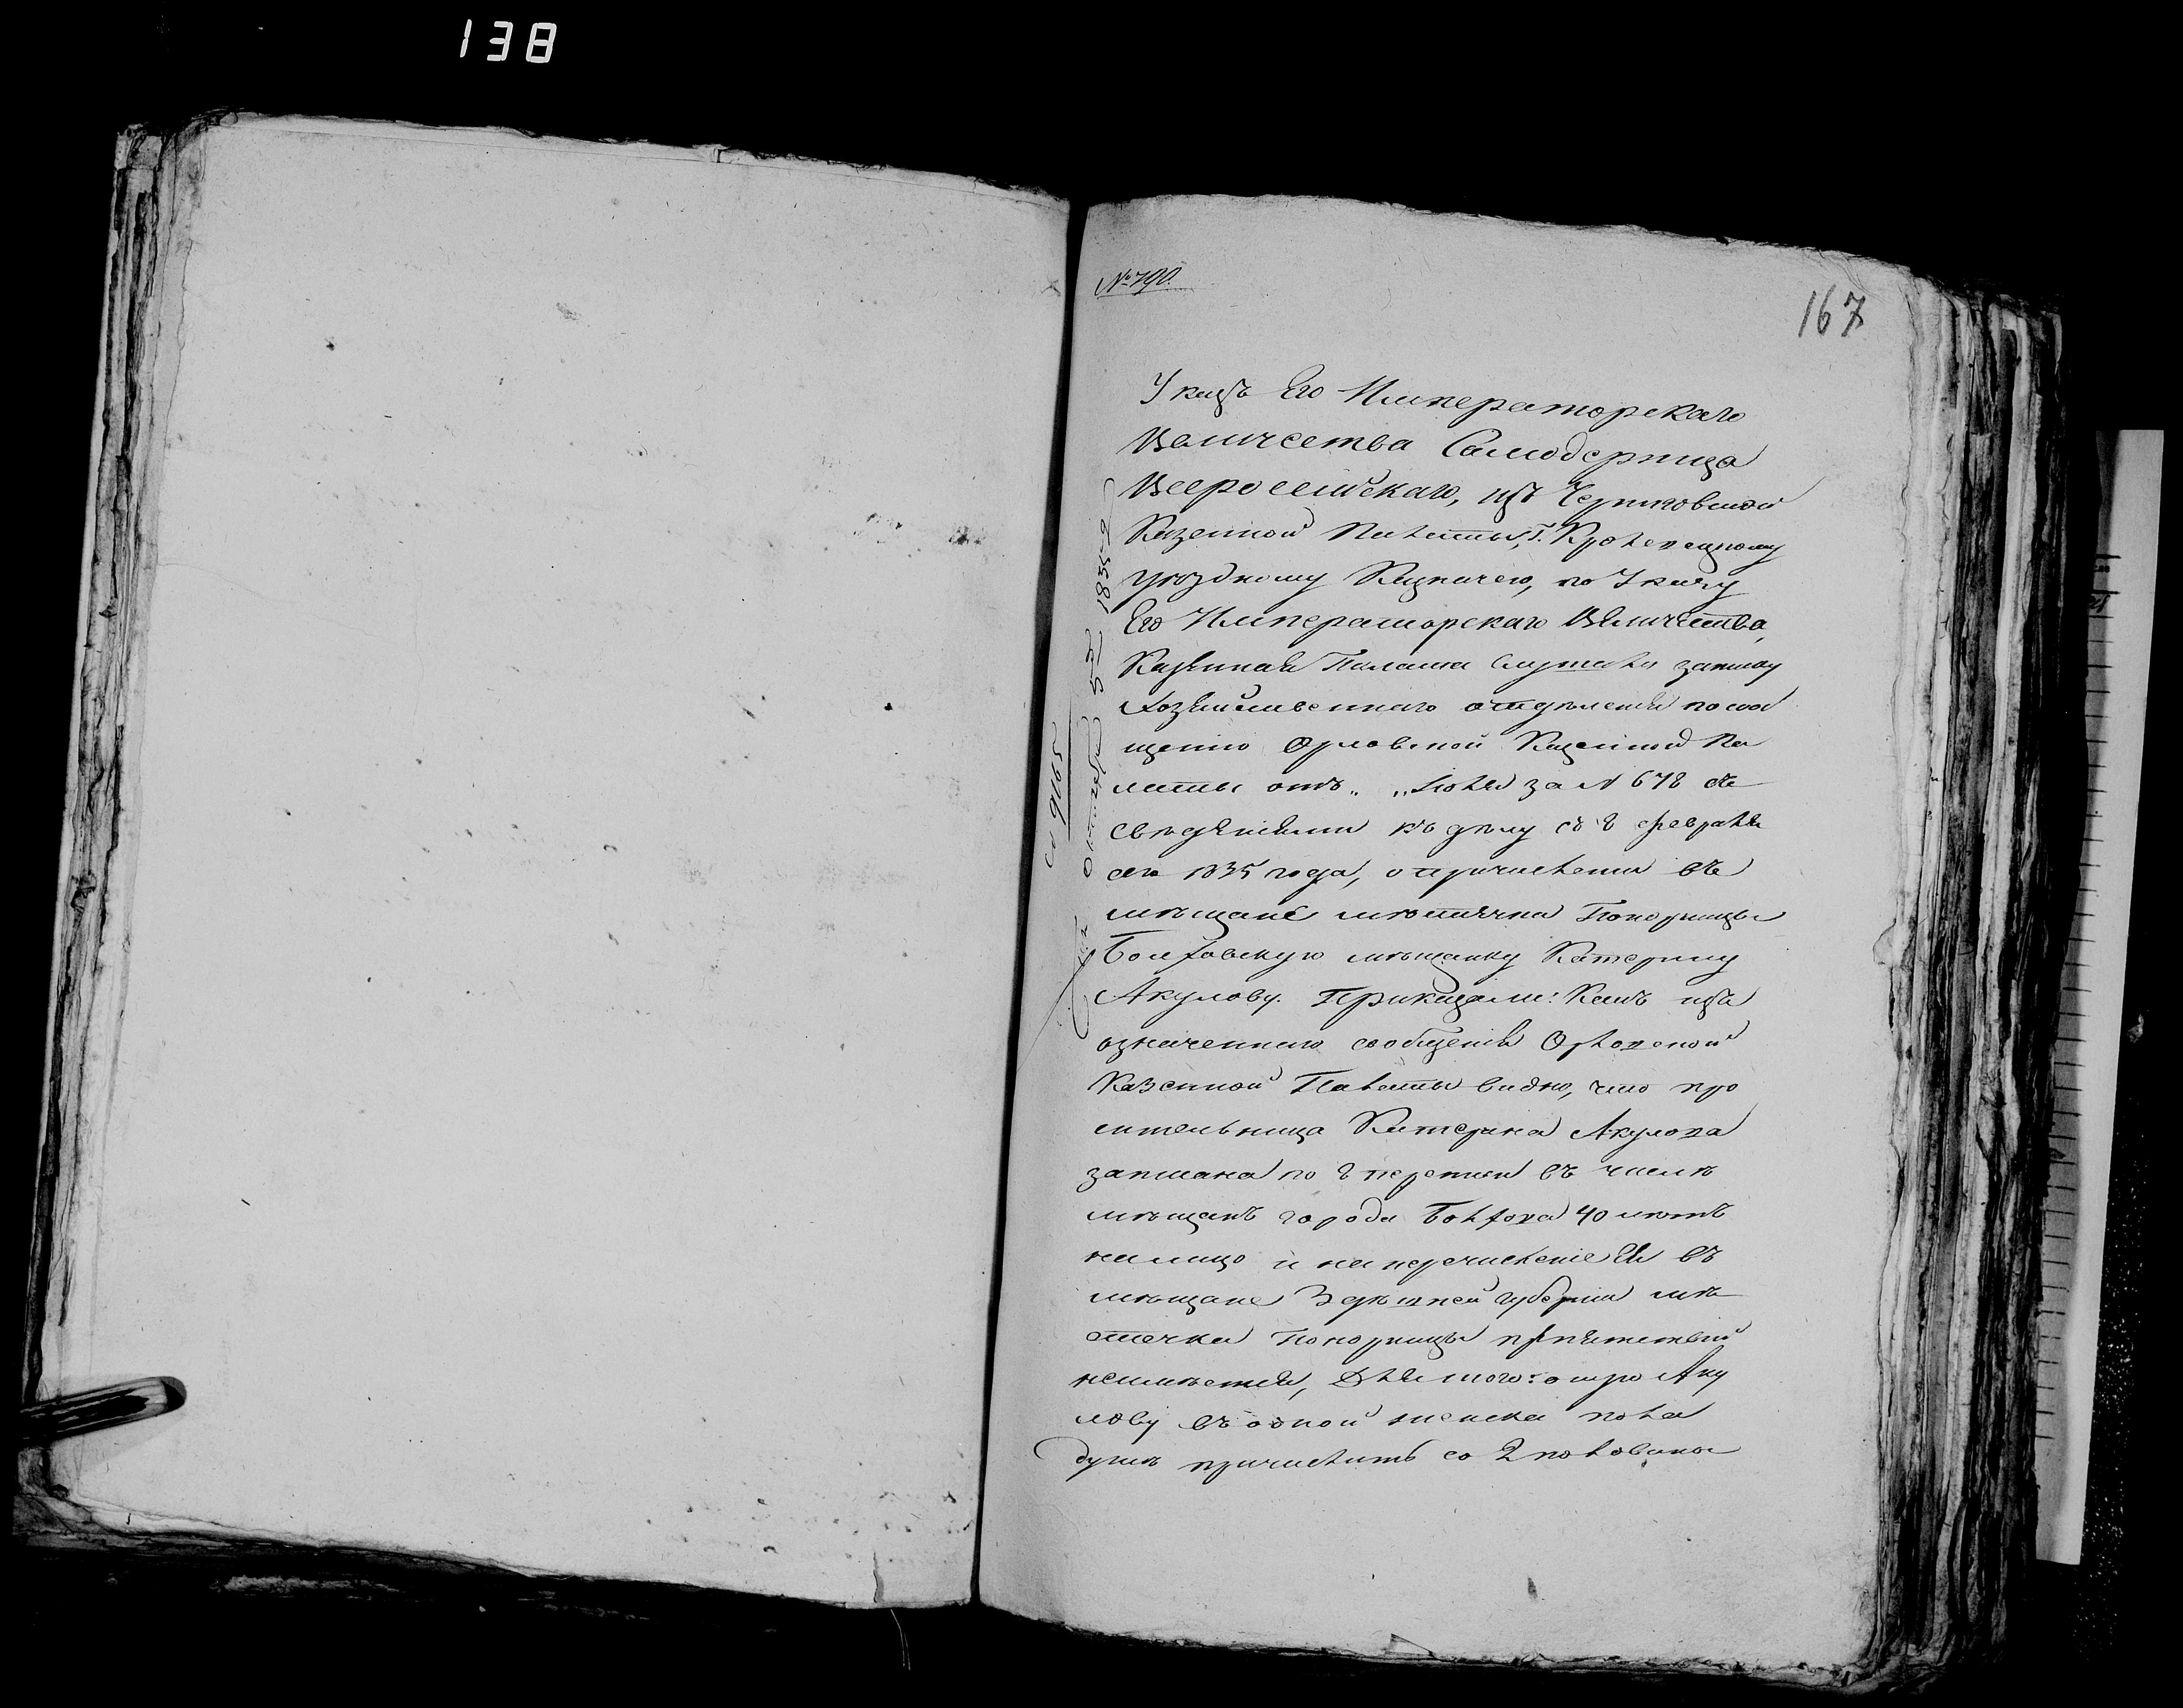 138
№ 790.
167
Указъ Его Императорскаго
Величества Самодержца
Всероссійскаго, изъ Черниговской
Казенной Палаты, Г. Кролевецкому
уѣздному Казначею, по Указу
Его Императорскаго Величества,
Казенная Палата Слушала записку
Хозяйственнаго отдѣленія по сооб
щенію Орловской Казенной Па
латы отъ „ „ Іюля за № 678 съ
свѣденіями къ дѣлу съ 8 февраля
сего 1835 года, о причисленіи въ
мѣщане мѣстечка Понорницы
Болховскую мѣщанку Катерину
Акулову. Приказали: Какъ изъ
означеннаго сообщенія Орловской
Казенной Палаты видно, что про
сительница Катерина Акулова
записана по 8 переписи въ числѣ
мѣщанъ города Болхова 40 лѣтъ
на лицо и на перечисленіе Ея въ
мѣщане Здѣшней губерніи мѣ
стечка Понорницы препятствій
неимѣется, Для того: оную Аку
лову въ одной женска пола
душѣ причислить со 2 половины
5 1835 г